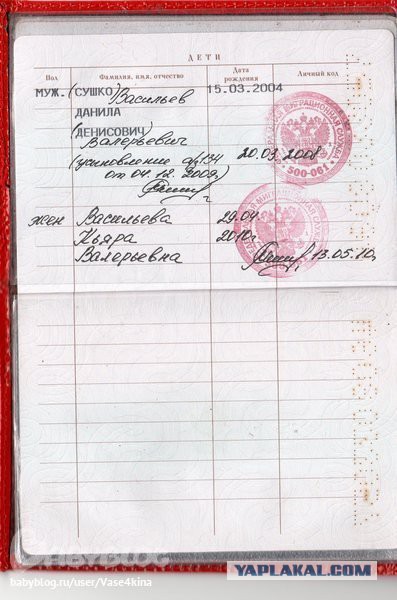 ДЕТИ
Пол Фамилия, имя, отчество Дата рождения Личный код
МУЖ. (СУШКО) Васильев 15.03.2004
ДАНИЛА
(ДЕНИСОВИЧ)
Валерьевич
(усыновление 20.03.2008
от 04.12.2009)
500-061
жен Васильева 29.04
Кьяра 2010г
Валерьевна 13.05.10г
BABYBLOG
babyblog.ru/user/Vase4kina
YAPLAKAL.COM